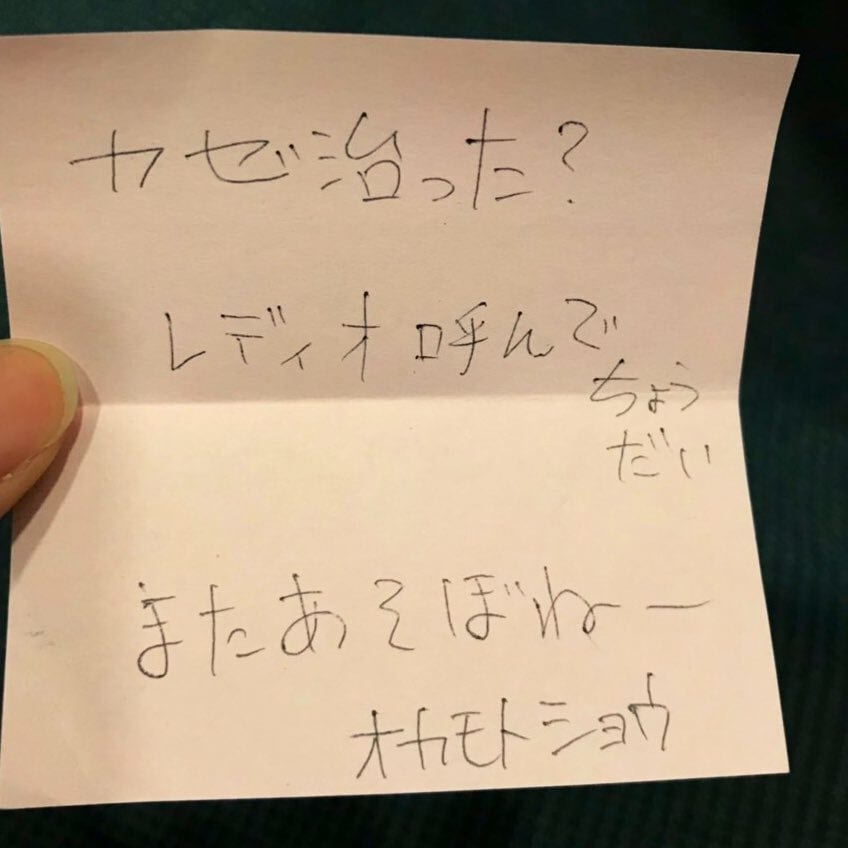 カゼ治った?
レディオ呼んで
ちょう
だい
またあそぼねー
オカモトショウ